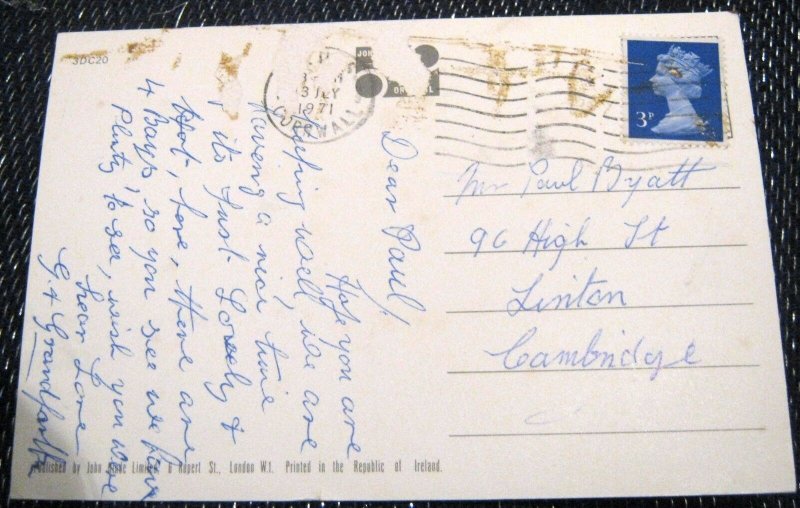 3DC20
JULY
1971
CORNWALL
3P
Dear Paul,
Hope you are
keeping well we are
having a nice time
its just Lovely &
Hot, here, there are
4 Bays, so you see we have
Plenty to see, wish you were
hear Love
G. & Grandfath
Mr Paul Byatt
96 High St
Linton
Cambridge
Published by John Hinde Limited, 6 Rupert St., London W.1. Printed in the Republic of Ireland.